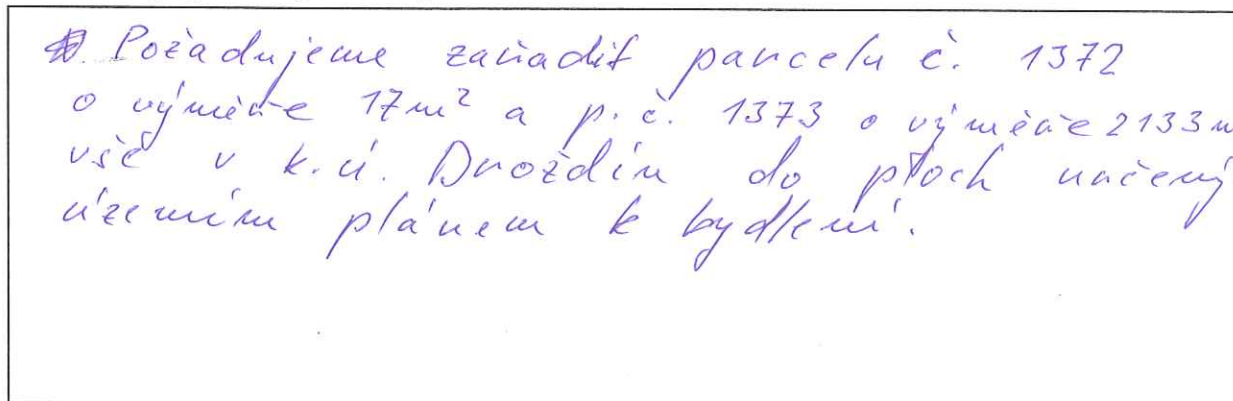 Požadujeme zařadit parcelu č. 1372
o výměře 17m² a p.č. 1373 o výměře 2133 m
vše v k.ú. Droždín do ploch určený
územním plánem k bydlení.